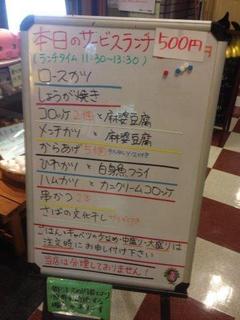 本日のサービスランチ 500円
(ランチタイム 11:30~13:30)
ロースカツ
しょうが焼き
コロッケ2個と麻婆豆腐
メンチカツ と 麻婆豆腐
からあげ5個
ひれカツ と 白身魚フライ
ハムカツ と カニクリームコロッケ
串カツ2本
さばの文化干し
ごはん・キャベツの少なめ・中盛り・大盛りは
注文時にお申し付け下さい
当店は分煙しておりません!